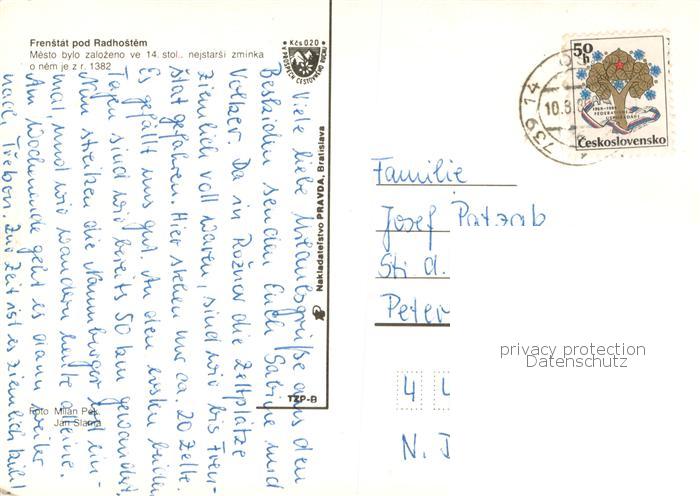 Frenštát pod Radhoštěm
Město bylo založeno ve 14. stol., nejstarší zmínka
o něm je z r. 1382
Kčs 0 20
VE PROSPĚCH CESTOVNÍHO RUCHU
Viele liebe Urlaubsgrüße aus den
Beskiden senden Euch Sabine und
Volker. Da in Rožnov die Zeltplätze
ziemlich voll waren, sind wir bis Fren-
štat gefahren. Hier stehen nur ca. 20 Zelte.
Es gefällt uns gut. An den ersten beiden
Tagen sind wir bereits 50 km gewandert.
Nun streiken die Naumburger erst ein-
mal, und wir wandern heute alleine.
Am Wochenende geht es dann weiter
nach Třeboň. Zur Zeit ist es ziemlich kühl
Foto Milan Pek,
Ján Sláma
Nakladatelstvo PRAVDA, Bratislava
TZP-B
739 14
10.8.
50 h
1969-1989
FEDERATIVNÍ
USPOŘÁDÁNÍ
Československo
Familie
Josef Patzak
Str. d.
Peter
4 4
N. J
privacy protection
Datenschutz